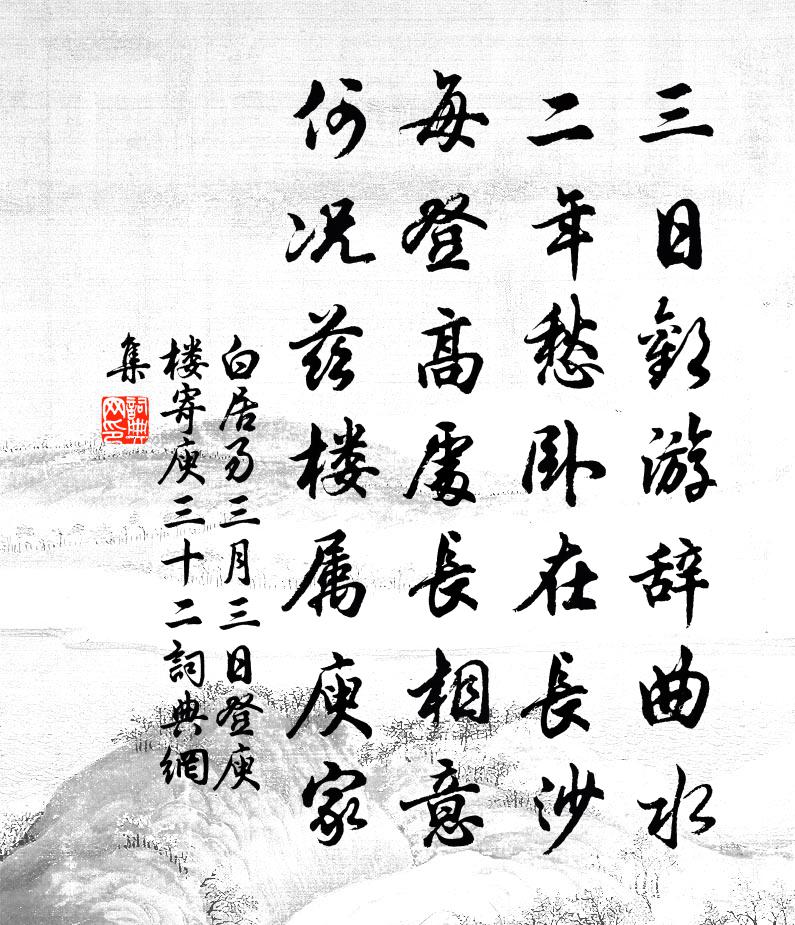 三日欢游辞曲水
二年愁卧在長沙
每登高處長相意
何况兹楼属庾家
白居易三月三日登庾
楼寄庾三十二詞典網
集
詞典
网印